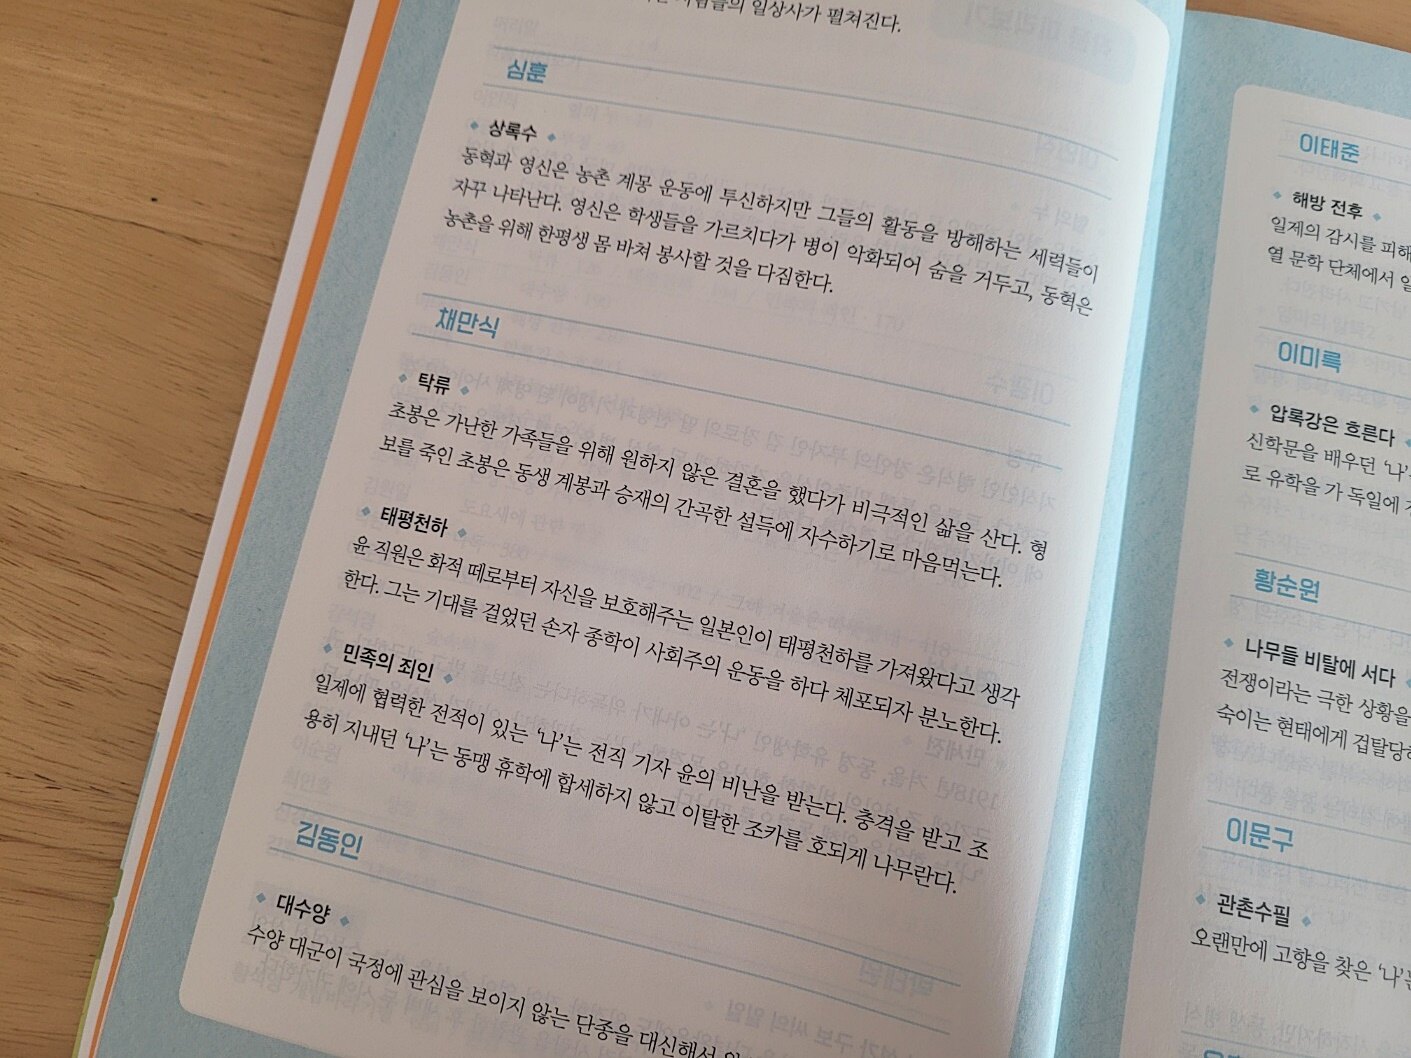 일상사가 펼쳐진다.
심훈
상록수
동혁과 영신은 농촌 계몽 운동에 투신하지만 그들의 활동을 방해하는 세력들이
자꾸 나타난다. 영신은 학생들을 가르치다가 병이 악화되어 숨을 거두고, 동혁은
농촌을 위해 한평생 몸 바쳐 봉사할 것을 다짐한다.
채만식
탁류
초봉은 가난한 가족들을 위해 원하지 않은 결혼을 했다가 비극적인 삶을 산다. 형
보를 죽인 초봉은 동생 계봉과 승재의 간곡한 설득에 자수하기로 마음먹는다.
태평천하
윤 직원은 화적 떼로부터 자신을 보호해주는 일본인이 태평천하를 가져왔다고 생각
한다. 그는 기대를 걸었던 손자 종학이 사회주의 운동을 하다 체포되자 분노한다.
민족의 죄인
일제에 협력한 전적이 있는 ‘나’는 전직 기자 윤의 비난을 받는다. 충격을 받고 조
용히 지내던 ‘나’는 동맹 휴학에 합세하지 않고 이탈한 조카를 호되게 나무란다.
김동인
대수양
수양 대군이 국정에 관심을 보이지 않는 단종을 대신해서
이태준
해방 전후
일제의 감시를 피해
열 문학 단체에서
이미륵
압록강은 흐른다
신학문을 배우던 ‘나’
로 유학을 가 독일에
황순원
나무들 비탈에 서다
전쟁이라는 극한 상황을
숙이는 현태에게 겁탈당
이문구
관촌수필
오랜만에 고향을 찾은 ‘나’는